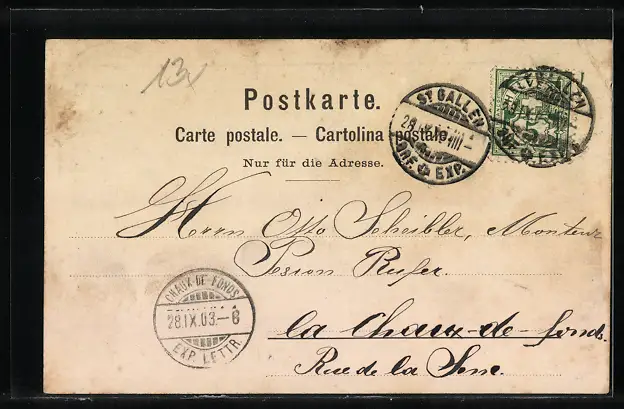 13x
Postkarte.
Carte postale. — Cartolina postale.
Nur für die Adresse.
ST GALLEN
BRF. EXP.
Herrn Otto Scheibler, Monteur
Pesion Rufer.
CHAUX-DE-FONDS
28.IX.03.–8
EXP. LETTR.
la Chaux-de-fonds.
Rue de la